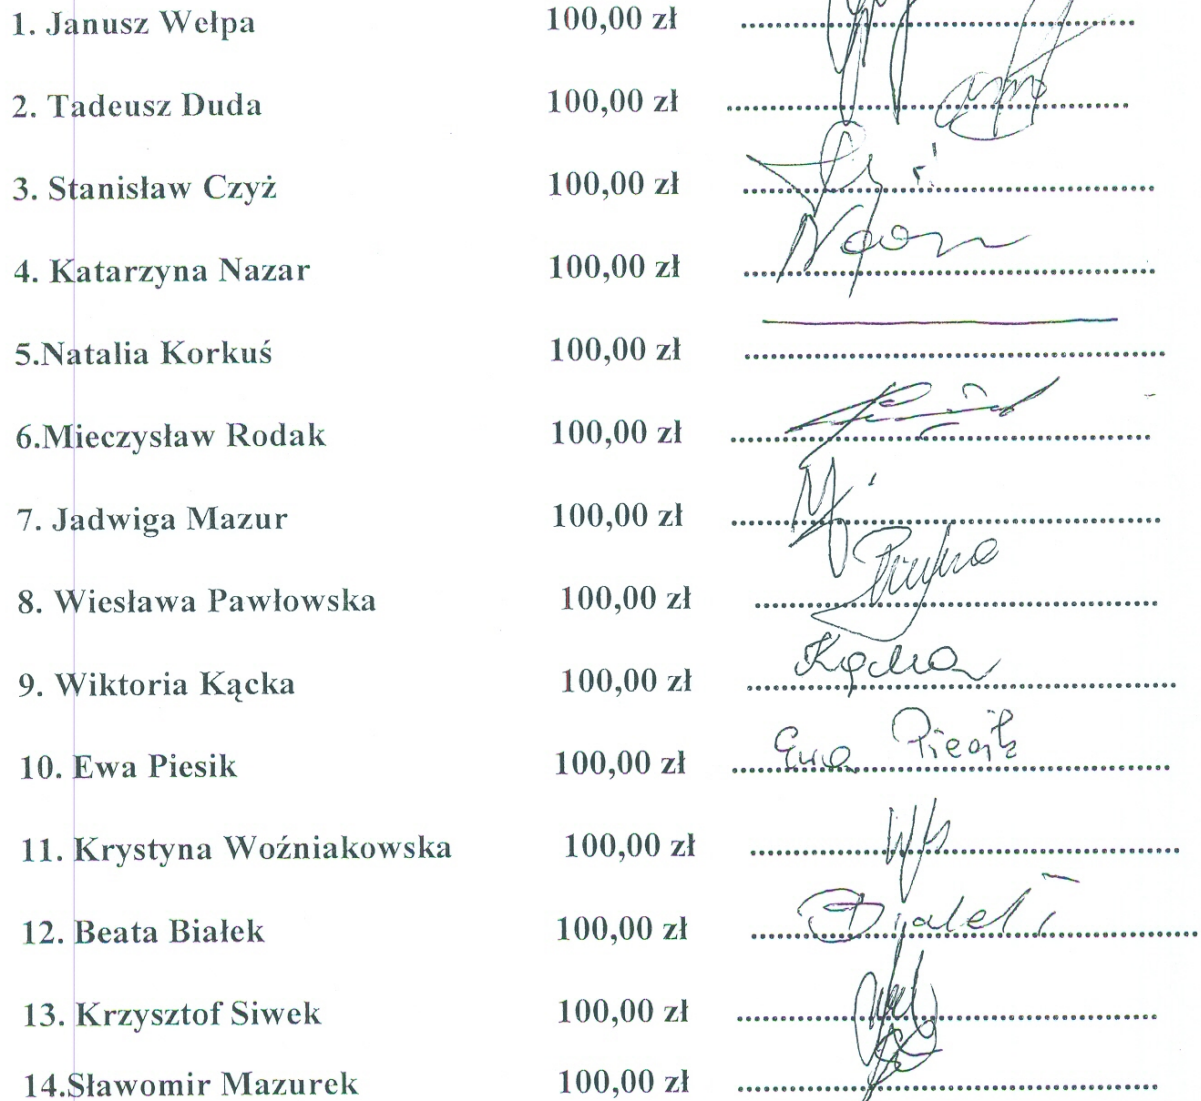 1. Janusz Wełpa 100,00 zł ........................................
2. Tadeusz Duda 100,00 zł ........................................
3. Stanisław Czyż 100,00 zł ........................................
4. Katarzyna Nazar 100,00 zł ........................................
5.Natalia Korkuś 100,00 zł ........................................
6.Mieczysław Rodak 100,00 zł ........................................
7. Jadwiga Mazur 100,00 zł ........................................
8. Wiesława Pawłowska 100,00 zł ........................................
9. Wiktoria Kącka 100,00 zł Kącka
10. Ewa Piesik 100,00 zł Ewa Piesik
11. Krystyna Woźniakowska 100,00 zł ........................................
12. Beata Białek 100,00 zł ........................................
13. Krzysztof Siwek 100,00 zł ........................................
14.Sławomir Mazurek 100,00 zł ........................................